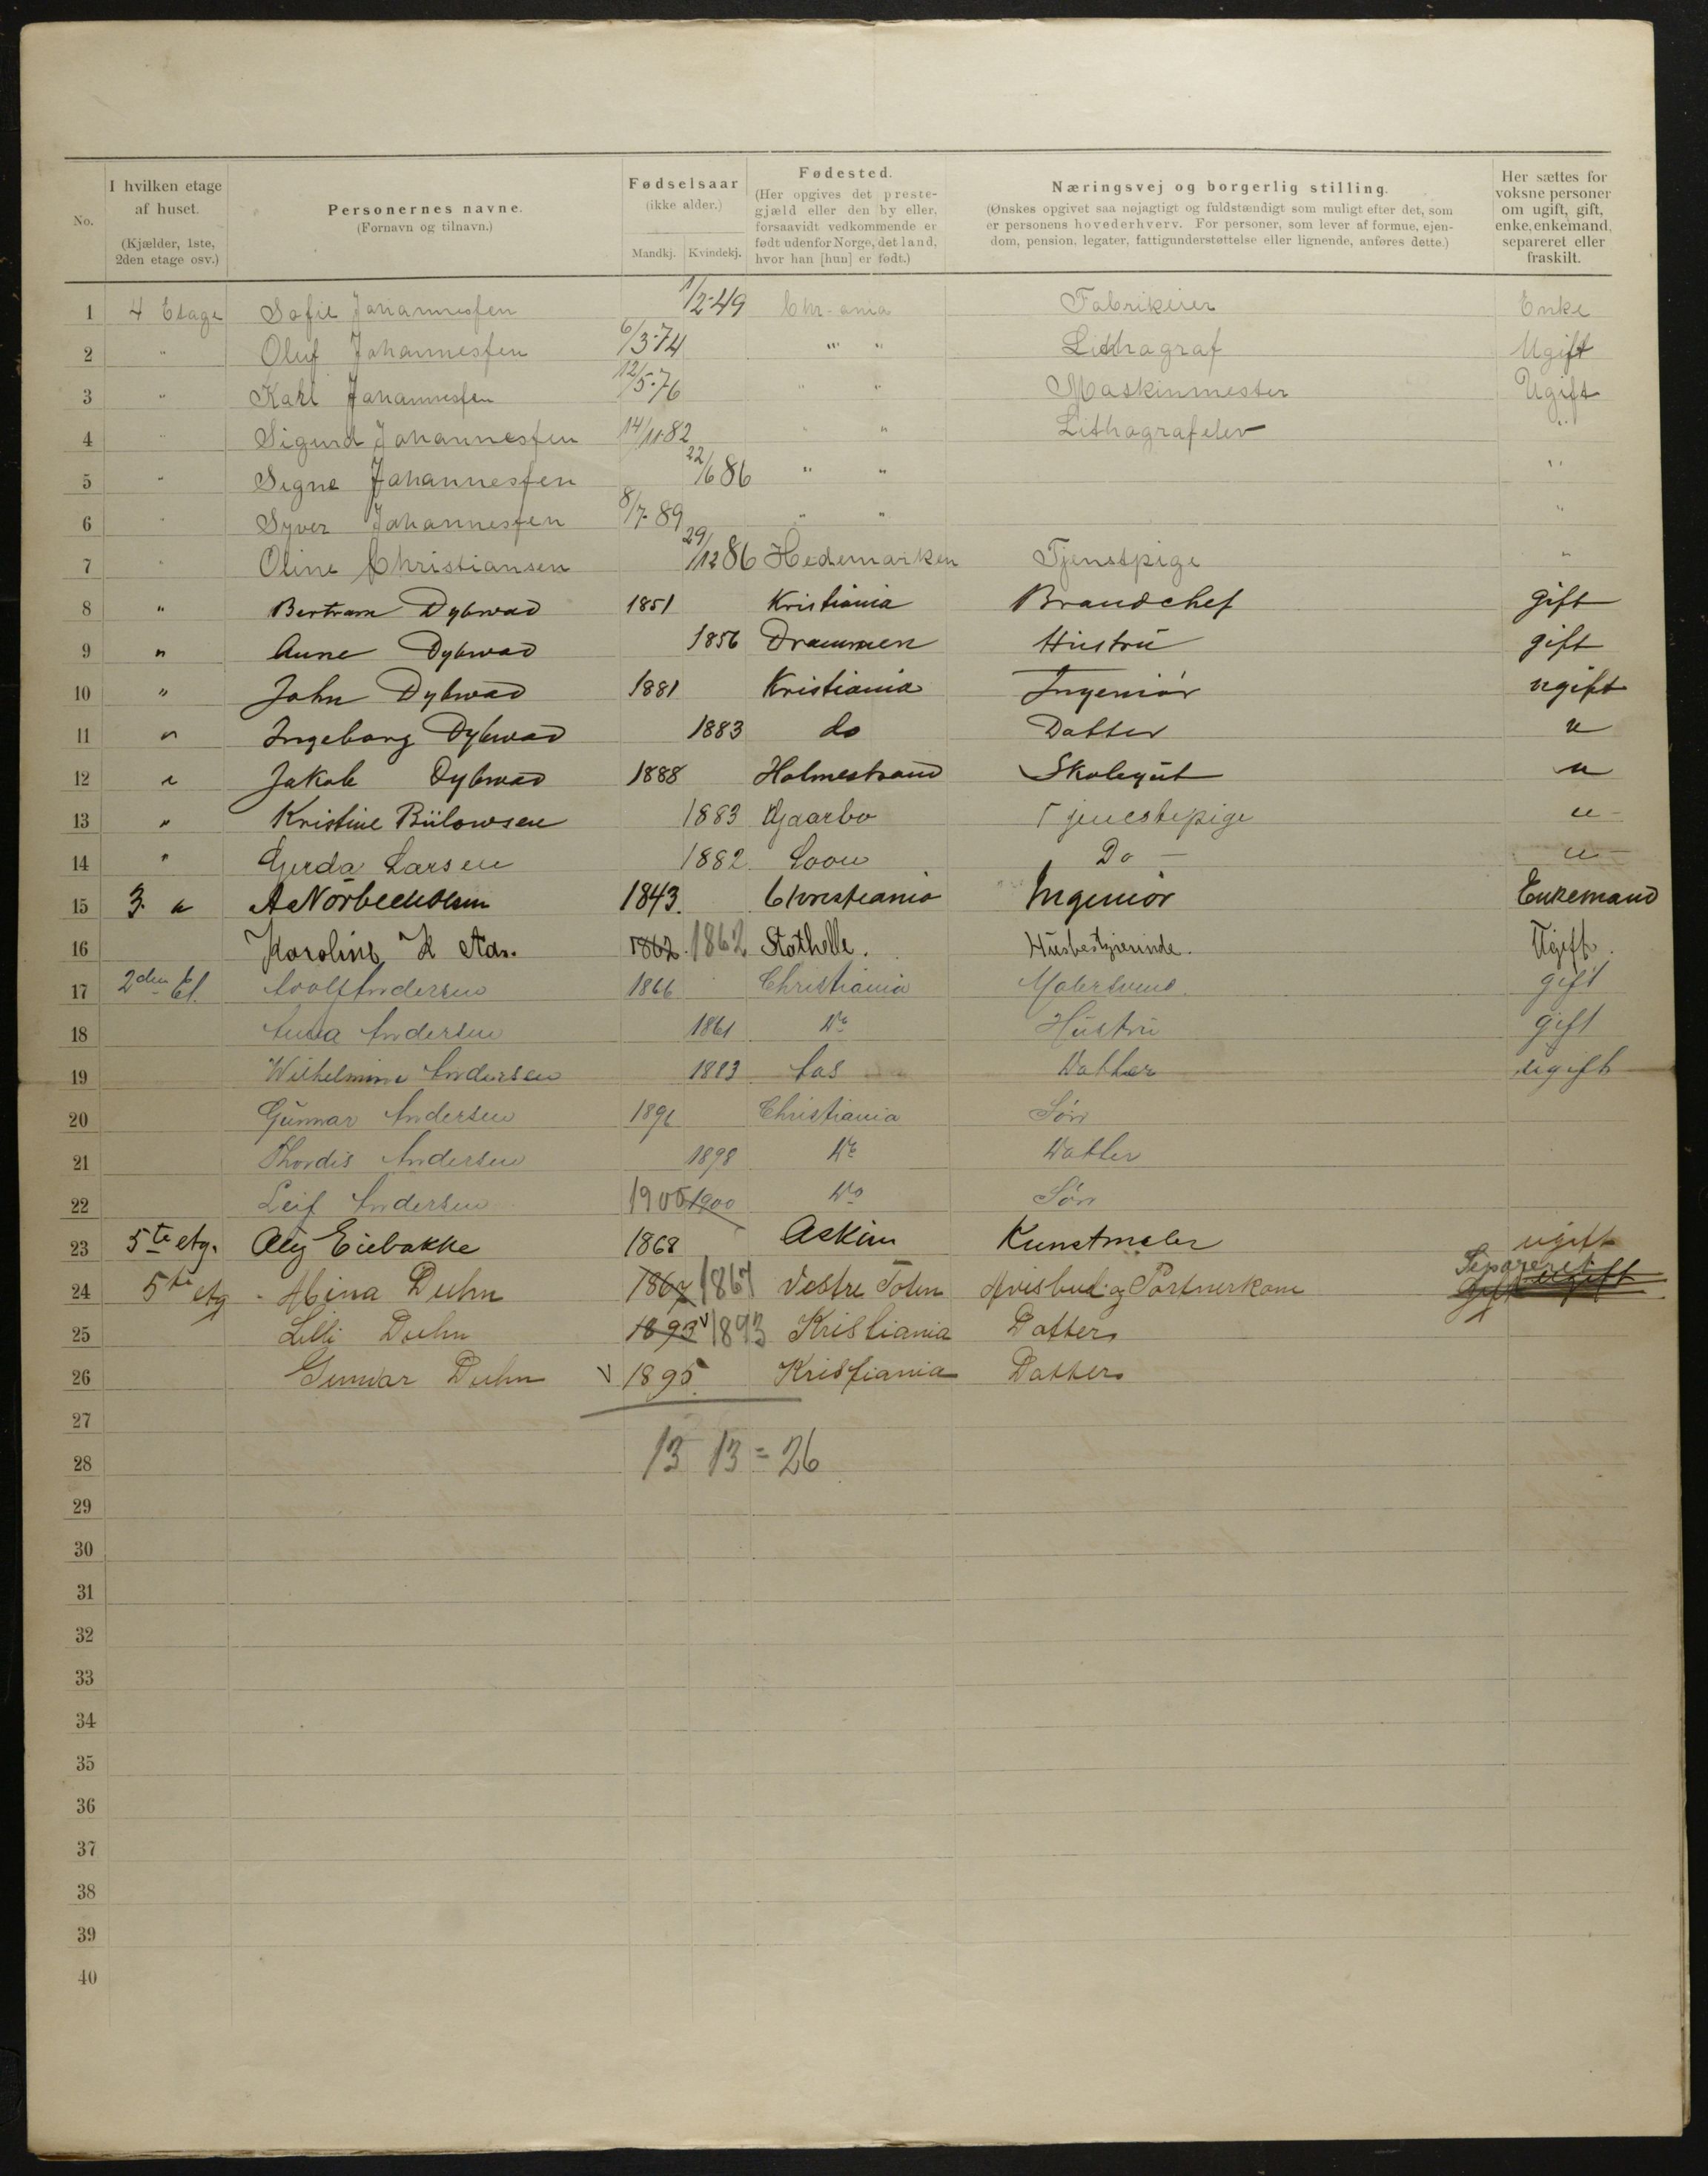 No.
I hvilken etage af huset. (Kjælder, 1ste, 2den etage osv.)
Personernes navne. (Fornavn og tilnavn.)
Fødselsaar (ikke alder.) Mandkj. Kvindekj.
Fødested. (Her opgives det prestegjæld eller den by eller, forsaavidt vedkommende er født udenfor Norge, det land, hvor han [hun] er født.)
Næringsvej og borgerlig stilling. (Ønskes opgivet saa nøjagtigt og fuldstændigt som muligt efter det, som er personens hovederhverv. For personer, som lever af formue, ejendom, pension, legater, fattigunderstøttelse eller lignende, anføres dette.)
Her sættes for voksne personer om ugift, gift, enke, enkemand, separeret eller fraskilt.
1 4 Etage Sofie Johannesfen 1/2-49 Chr-ania Fabrikeier Enke
2 " Oluf Johannesfen 6/3-74 " " Lithograf Ugift
3 " Karl Johannesfen 12/5-76 " " Maskinmester Ugift
4 " Sigurd Johannesfen 14/11-82 " " Lithografelev "
5 " Signe Johannesfen 22/6 86 " " "
6 " Syver Johannesfen 8/7-89 " " "
7 " Oline Christiansen 29/12 86 Hedemarken Tjenstpige "
8 " Bertram Dybwad 1851 Kristiania Brandchef gift
9 " Anne Dybwad 1856 Drammen Hustru gift
10 " John Dybwad 1881 Kristiania Ingeniør ugift
11 " Ingeborg Dybwad 1883 do Datter u
12 " Jakob Dybwad 1888 Holmestrand Skolegut u
13 " Kristine Bülowsen 1883 Gaarbo Tjenestepige u-
14 " Gerda Larsen 1882 Soon Do - u-
15 3. " A Nørbech Olsen 1843. Christiania Ingeniør Enkemand
16 Karoline K Aas. 1862. 1862 Stathelle. Husbestyrerinde. Ugift.
17 2den Et. Adolf Andersen 1866 Christiania Malersvend. gift
18 Anna Andersen 1861 Do Hustru gift
19 Wilhelmine Andersen 1883 Aas Datter ugift
20 Gunnar Andersen 1896 Christiania Søn
21 Thordis Andersen 1898 Do Datter
22 Leif Andersen 1900 1900 Do Søn
23 5te etg. Alf Eiebakke 1868 Askim Kunstmaler ugift
24 5te etg - Mina Duhn 1867 1867 Vestre Toten Avisbud og Portnerkone Separeret Gift ugift
25 Lilli Duhn 1893 v 1893 Kristiania Datter
26 Gunvar Duhn v 1895 Kristiania Datter
27
28 13 13 = 26
29
30
31
32
33
34
35
36
37
38
39
40